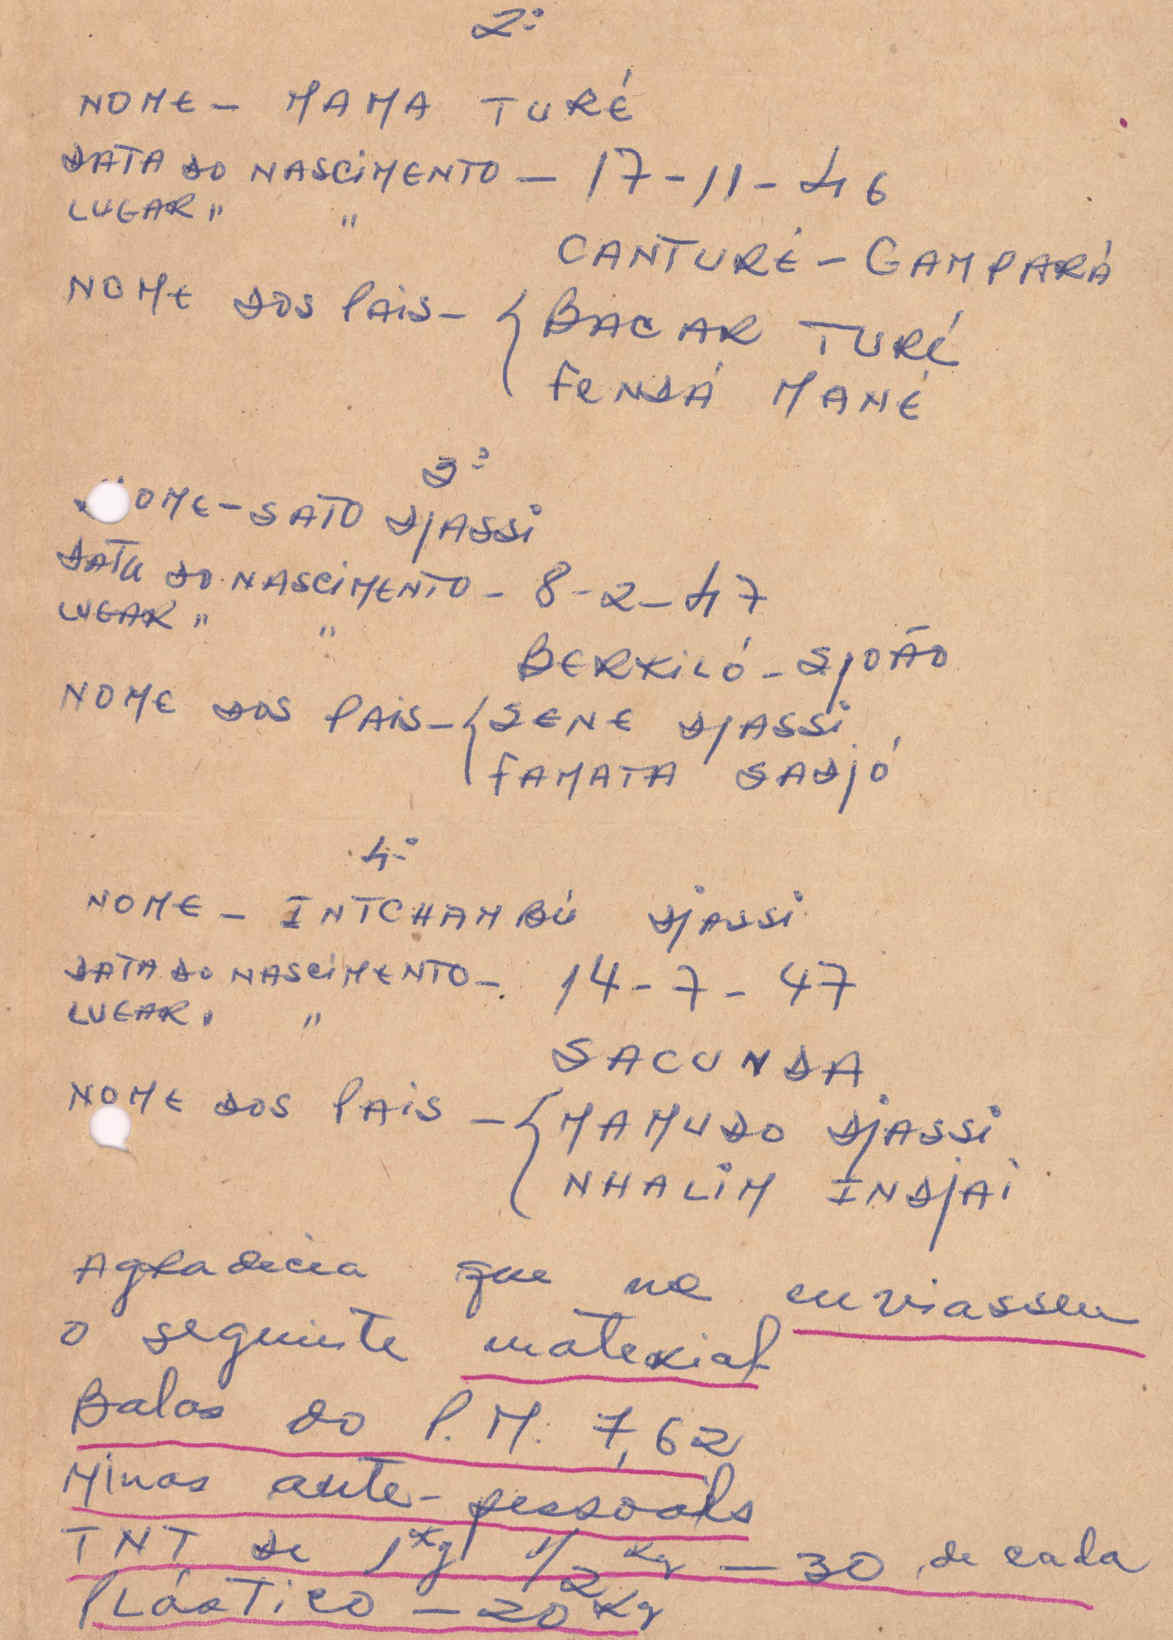 2º
NOME - MAMA TURÉ
DATA DO NASCIMENTO - 17-11-46
LUGAR " "
CANTURÉ - GAMPARÁ
NOME DOS PAIS - { BACAR TURÉ
FENDÁ MANÉ
3º
NOME - SATO DJASSI
DATA DO NASCIMENTO - 8-2-47
LUGAR " "
BERKILÓ - SJOÃO
NOME DOS PAIS - { SENE DJASSI
FAMATA SADJÓ
4º
NOME - INTCHAMBÚ DJASSI
DATA DO NASCIMENTO - 14-7-47
LUGAR " "
SACUNDA
NOME DOS PAIS - { MAMUDO DJASSI
NHALIM INDJAI
Agradecia que me enviassem
o seguinte material
Balas do P.M. 7,62
Minas ante-pessoais
TNT de 1 Kg 1/2 Kg - 30 de cada
PLÁSTICO - 20 Kg